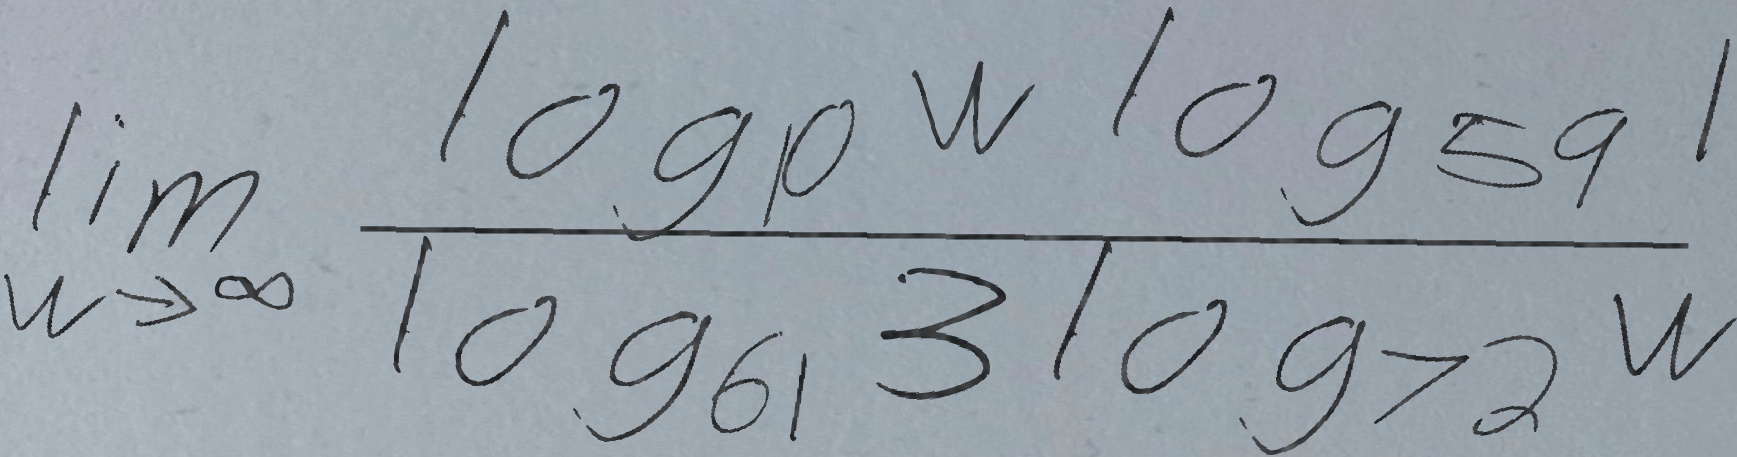 \lim_{w \to \infty} \frac{\log_{10} w \log_{59} 1}{\log_{61} 3 \log_{72} w}